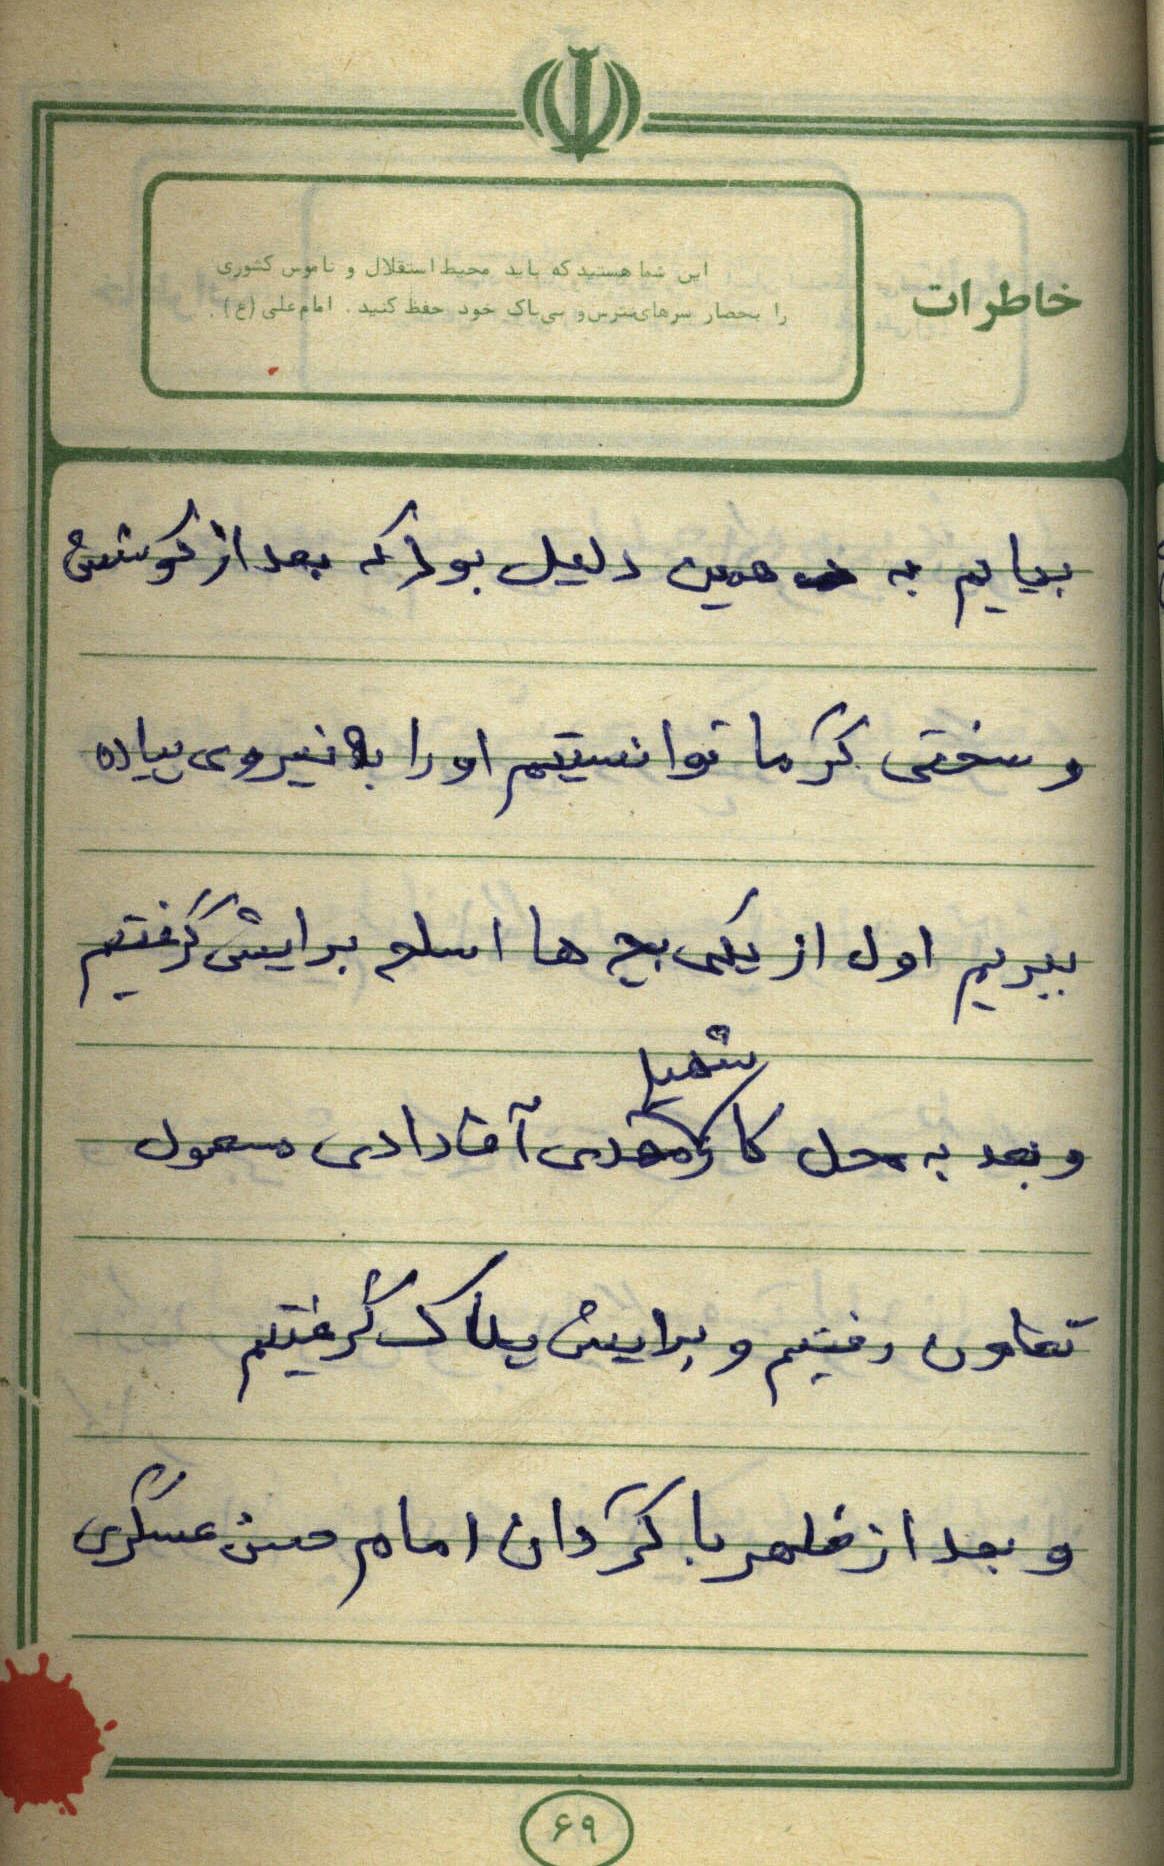 خاطرات
این شما هستید که باید محیط استقلال و ناموس کشوری
را بحصار سرهای نترس و بی‌باک خود حفظ کنید . امام علی (ع) .
بیایم به همین دلیل بود که بعد از کوشش
و سختی گرما توانستیم او را به نیروی پیاده
ببریم اول از یکی بچ ها اسلح برایش گرفتیم
شهید
و بعد به محل کار مهدی آقادادی مسعول
تعاون رفتیم و برایش پلاک گرفتیم
و بعد از ظهر با گردان امام حسن عسگری
۶۹